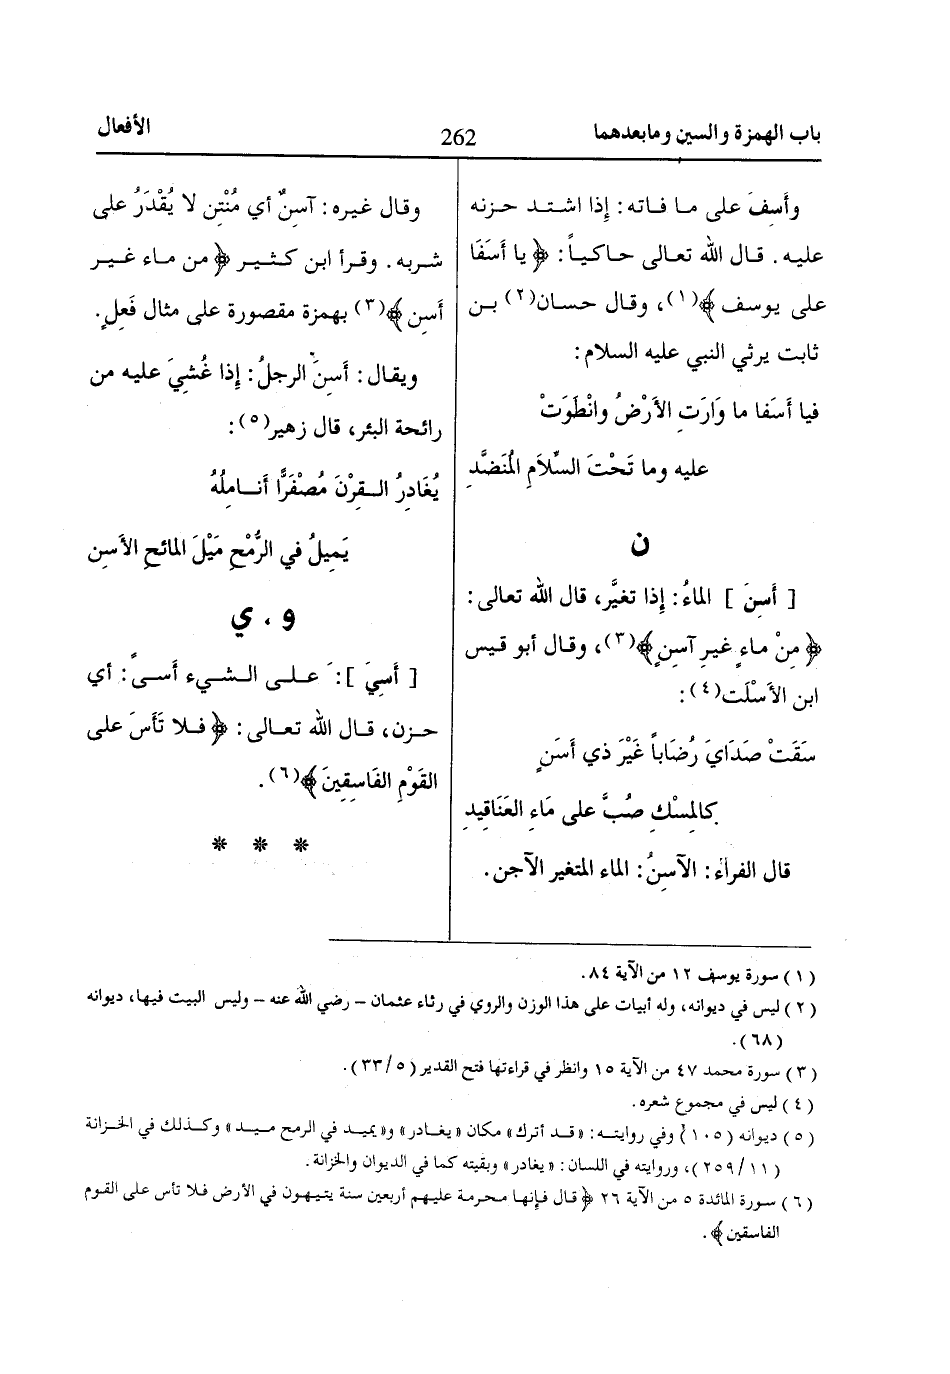 باب الهمزة والسين ومابعدهما
262
الأفعال
وأَسِفَ على ما فاته: إِذا اشتد حزنه
عليه. قال الله تعالى حاكياً: ﴿يا أَسَفَا
على يوسف﴾(١)، وقال حسان(٢) بن
ثابت يرثي النبي عليه السلام:
فيا أَسَفا ما وَارَتِ الأَرْضُ وانْطَوَتْ
عليه وما تَحْتَ السِّلاَمِ المُنَضَّدِ
ن
[ أَسِنَ ] الماءُ: إِذا تغيَّر، قال الله تعالى:
﴿مِنْ ماءٍ غيرِ آسنٍ﴾(٣)، وقال أبو قيس
ابن الأَسْلَت(٤):
سَقَتْ صَدَايَ رُضَاباً غَيْرَ ذي أَسَنٍ
كالمِسْكِ صُبَّ على مَاءِ العَنَاقِيدِ
قال الفراء: الآسِنُ: الماء المتغير الآجن.
وقال غيره: آسنٌ أي مُنْتن لا يُقْدَرُ على
شربه. وقرأ ابن كثير ﴿من ماء غير
أَسن﴾(٣) بهمزة مقصورة على مثال فَعِلٍ.
ويقال: أَسِنَ الرجلُ: إِذا غُشيَ عليه من
رائحة البئر، قال زهير(٥):
يُغَادِرُ القِرْنَ مُصْفَرًّا أنامِلُهُ
يَمِيلُ في الرُّمْحِ مَيْلَ المائحِ الأَسِن
و ، ي
[ أَسِيَ ]: على الشيء أسىً: أي
حزن، قال الله تعالى: ﴿فلا تَأْسَ على
القَوْمِ الفَاسِقِينَ﴾(٦).
* * *
(١) سورة يوسف ١٢ من الآية ٨٤.
(٢) ليس في ديوانه، وله أبيات على هذا الوزن والروي في رثاء عثمان – رضي الله عنه – وليس البيت فيها، ديوانه
(٦٨).
(٣) سورة محمد ٤٧ من الآية ١٥ وانظر في قراءتها فتح القدير (٥/٣٣).
(٤) ليس في مجموع شعره.
(٥) ديوانه (١٠٥) وفي روايته: «قد أترك» مكان «يغادر» و«يميد في الرمح ميد» وكذلك في الخزانة
(١١/٢٥٩)، وروايته في اللسان: «يغادر» وبقيته كما في الديوان والخزانة.
(٦) سورة المائدة ٥ من الآية ٢٦ ﴿قال فإنها محرمة عليهم أربعين سنة يتيهون في الأرض فلا تأس على القوم
الفاسقين﴾.